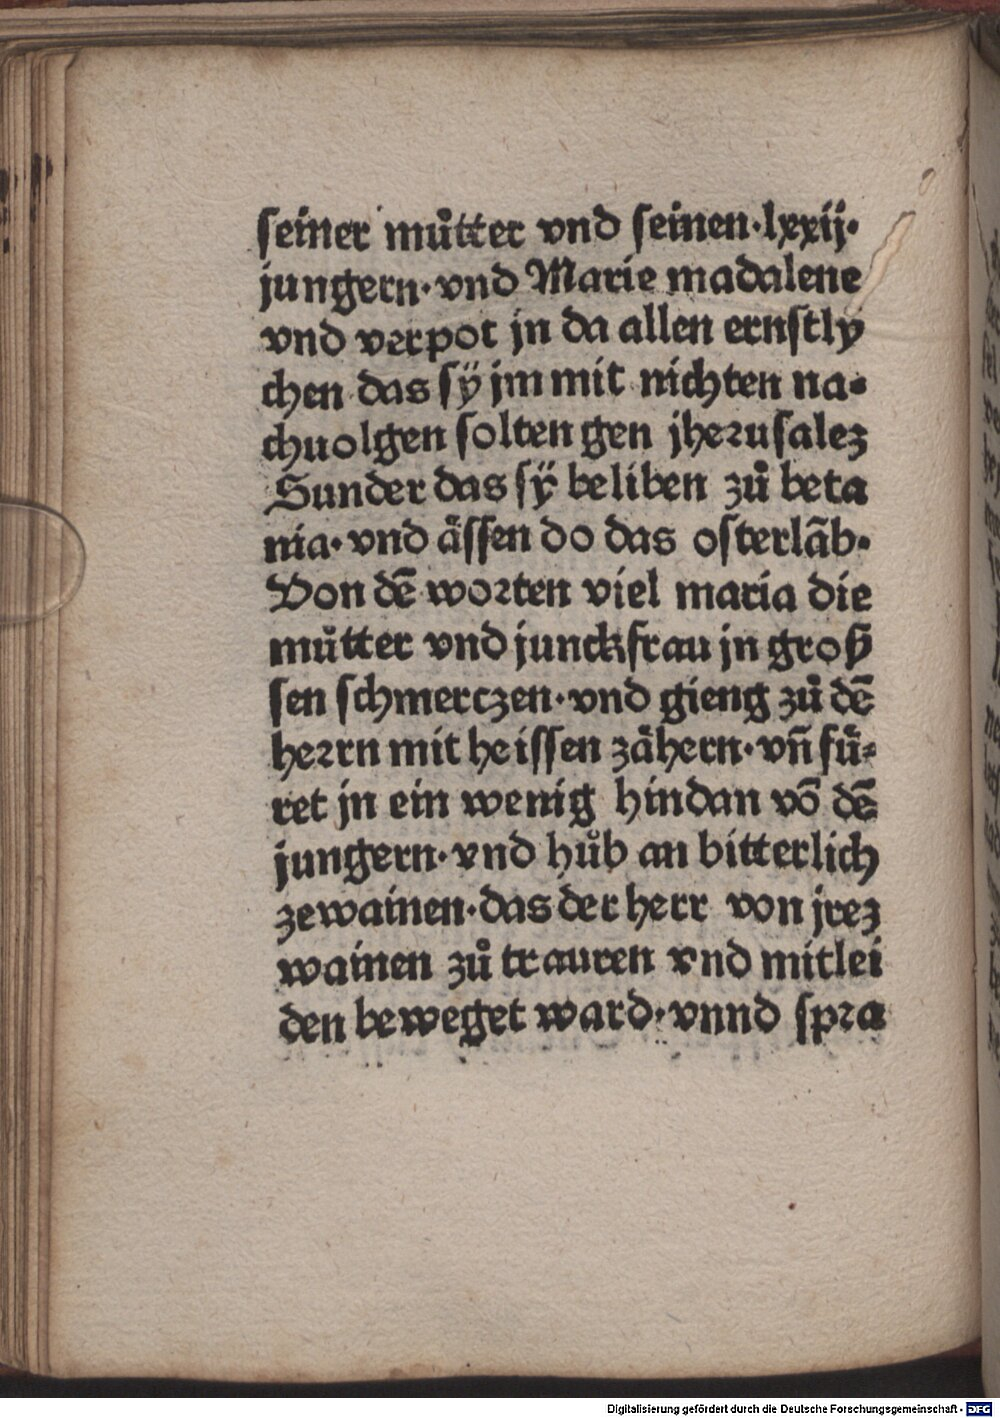 seiner můtter vnd seinen·lxxij·
jungern·vnd Marie madalene
vnd verpot jn da allen ernstly
chen das sÿ jm mit nichten na⸗
chuolgen solten gen jherusalez
Sunder das sÿ beliben zů beta
nia·vnd aͤssen do das osterlãb·
Von dẽ worten viel maria die
můtter vnd junckfrau jn groß
sen schmerczen·vnd gieng zů dẽ
herrn mit heissen zaͤhern·vñ fuͤ⸗
ret jn ein wenig hindan võ dẽ
jungern·vnd hůb an bitterlich
zewainen·das der herr von jrez
wainen zů trauren vnd mitlei
den beweget ward·vnnd spra
Digitalisierung gefördert durch die Deutsche Forschungsgemeinschaft - DFG